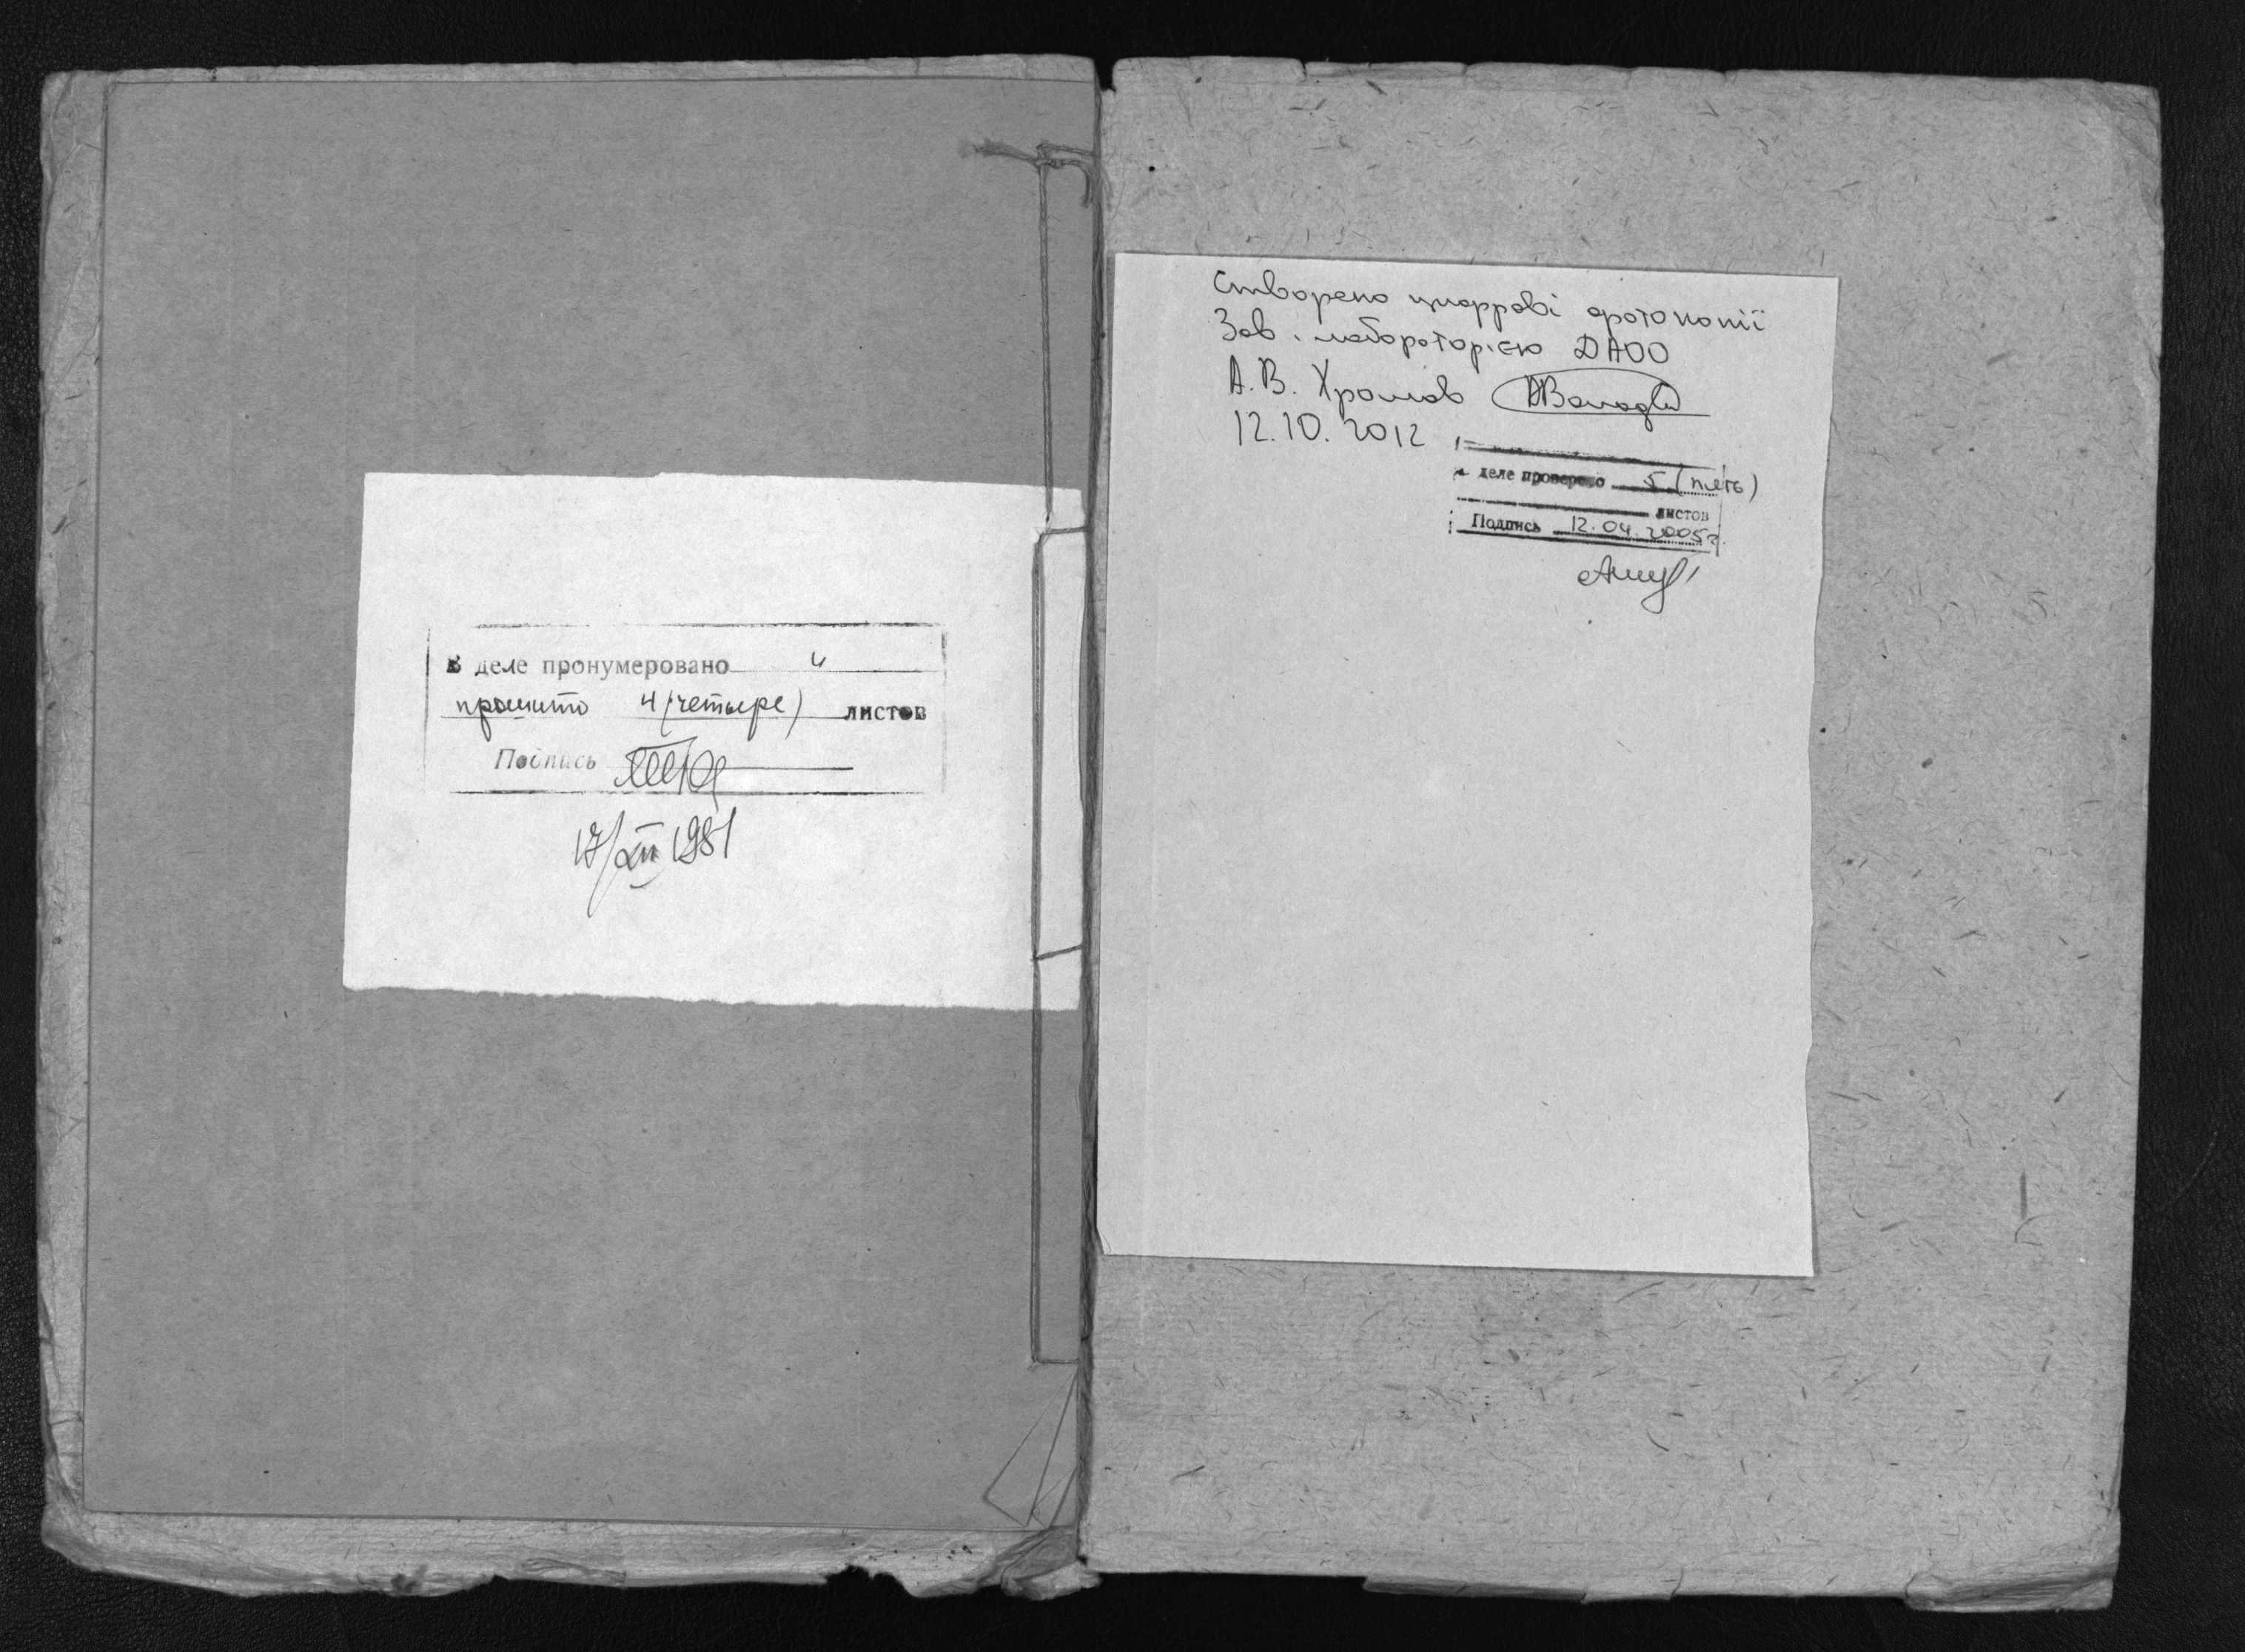 В деле пронумеровано и
прошито 4 (четыре) листов
Подпись
17/XII 1981
Створено цифрові фотокопії
Зав. лабораторією ДАОО
А.В. Хромов
12.10.2012
деле проверено 5 (пять)
листов
Подпись 12.04.2005г.